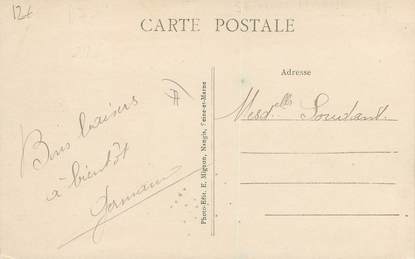 12€
CARTE POSTALE
Bons baisers
à bientôt
Germain
Photo-Edit. E. Mignon, Nangis, Seine-et-Marne
Adresse
Mesd^elles Soudant